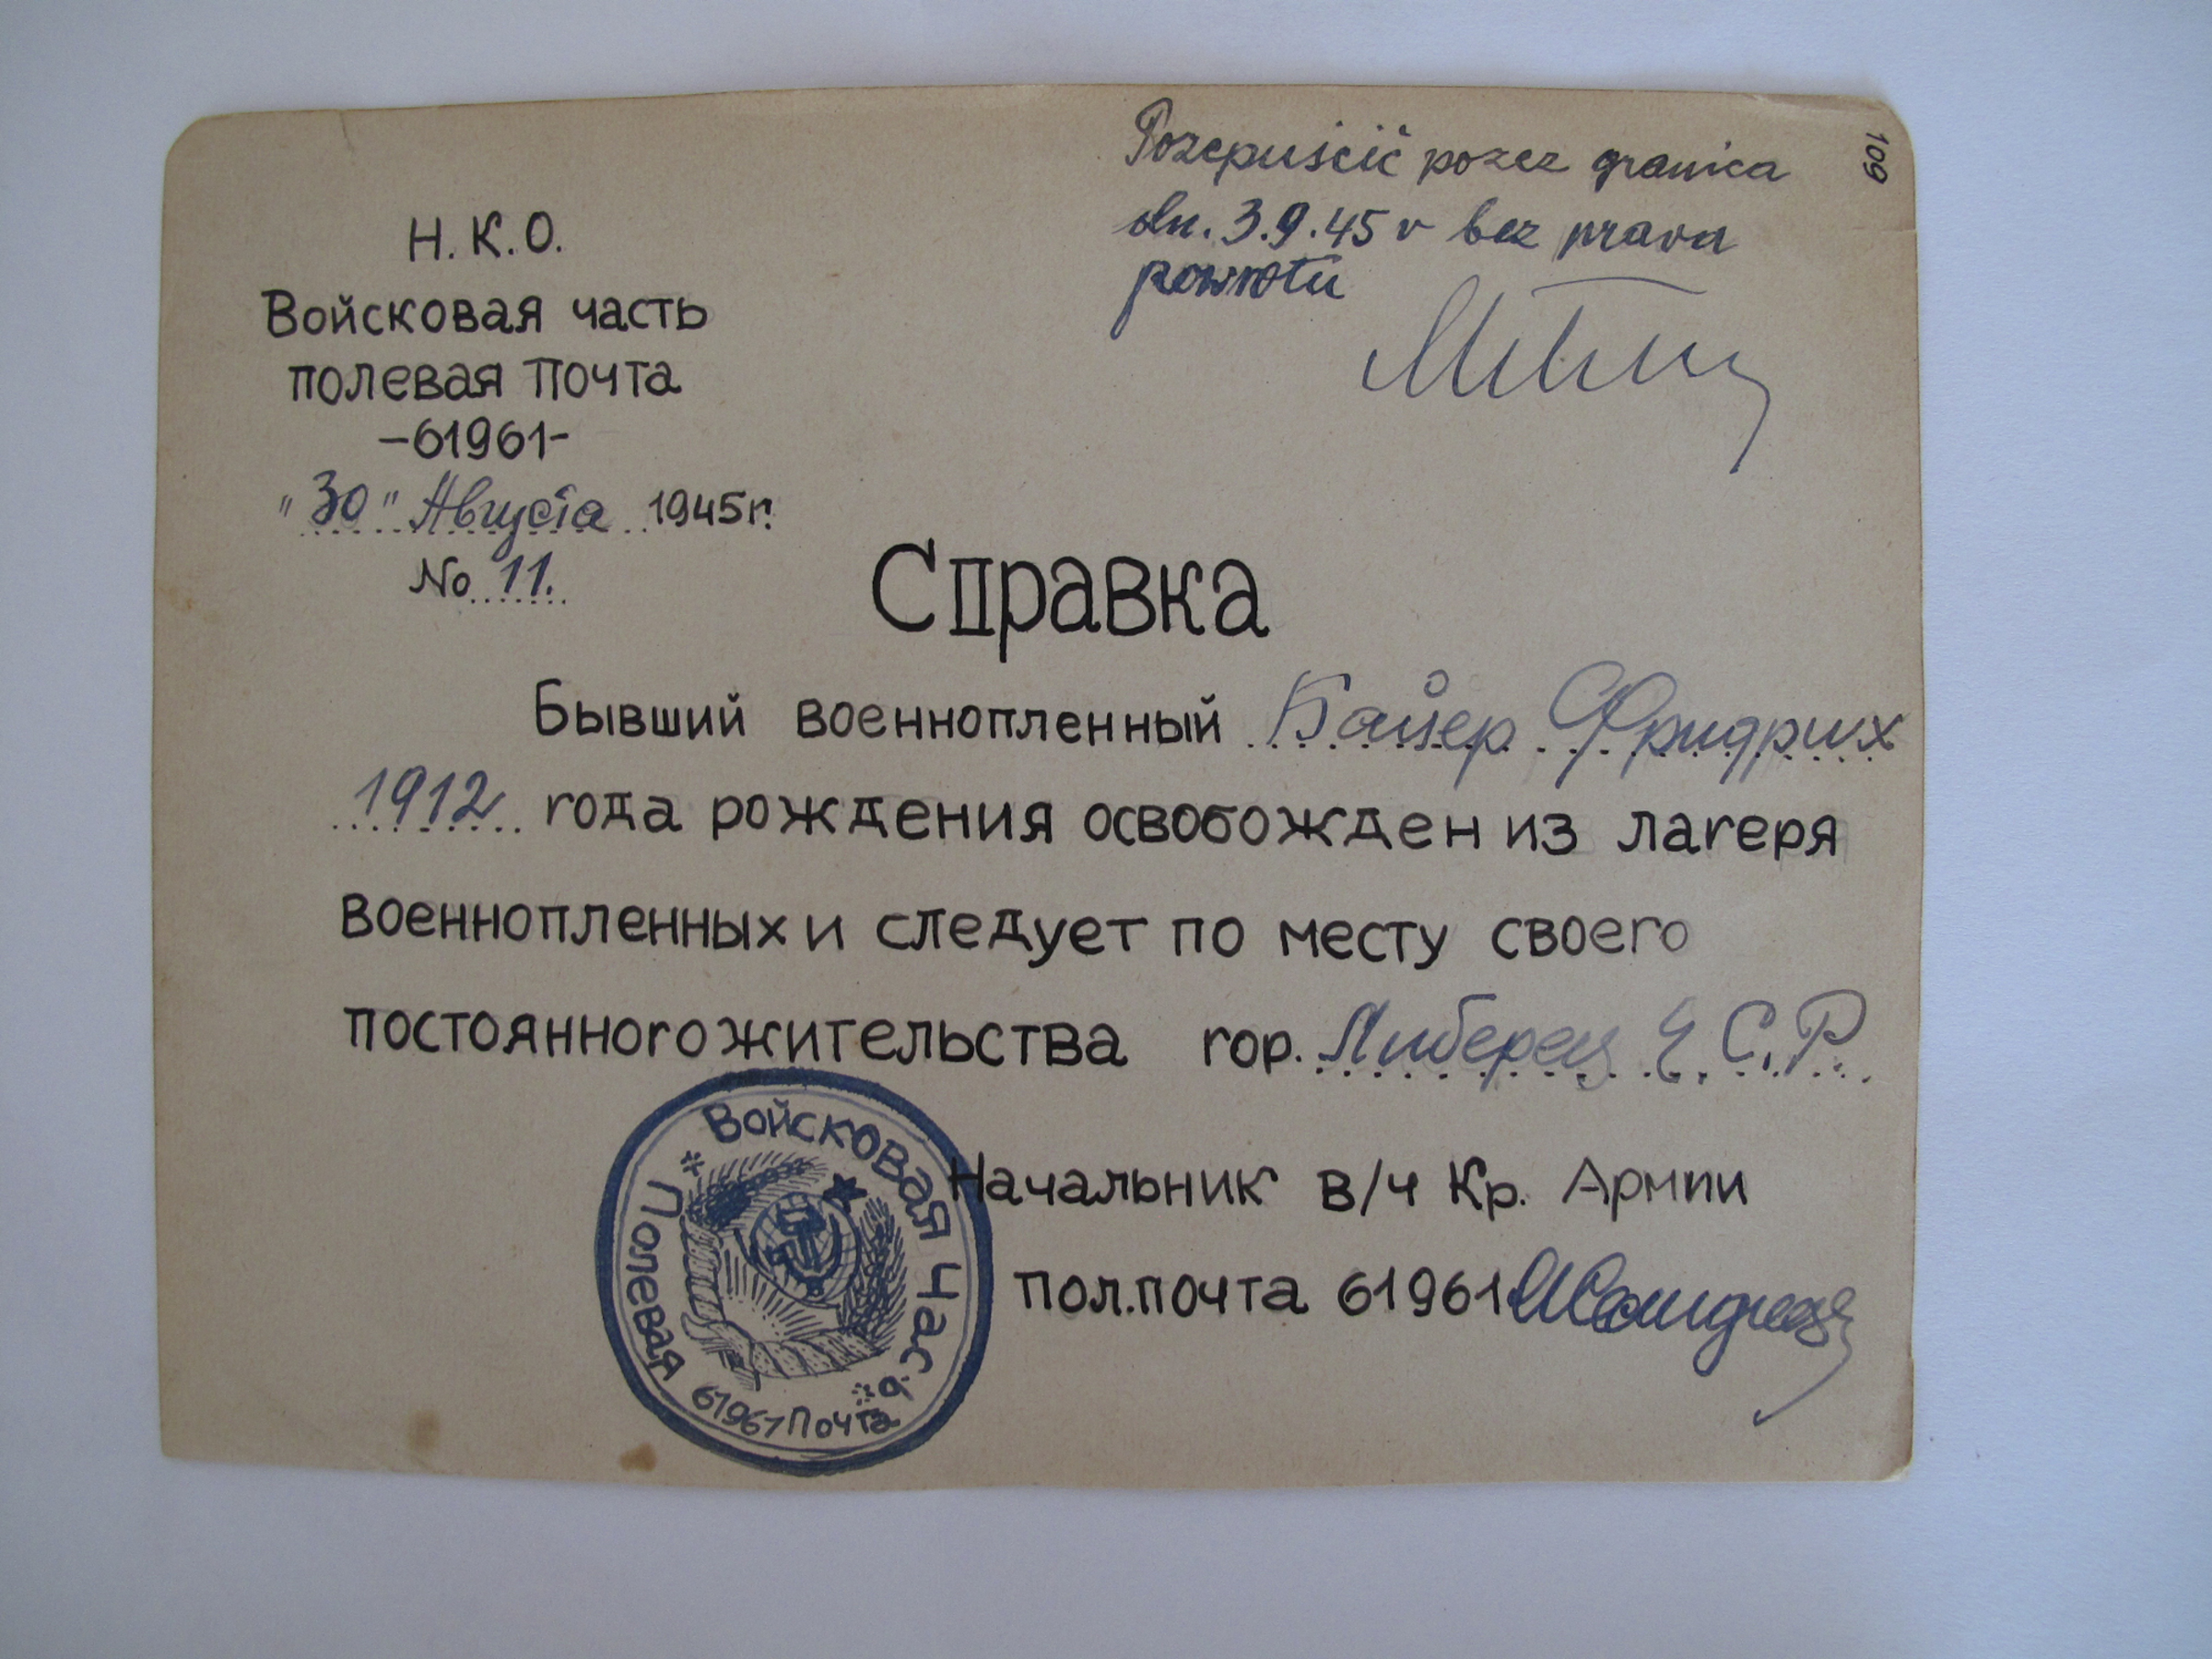 Pozepuścić pozez granica
dn. 3.9.45 r bez prawa
powrotu
109
Н.К.О.
Войсковая часть
полевая Почта
-61961-
"30" Августа 1945г.
No 11.
Справка
Бывший военнопленный Байер Фридрих
1912 года рождения освобожден из лагеря
военнопленных и следует по месту своего
постоянного жительства гор. Либерец Ч.С.Р.
Начальник в/ч Кр. Армии
пол.почта 61961
* Войсковая Час
Полевая 61961 Почта